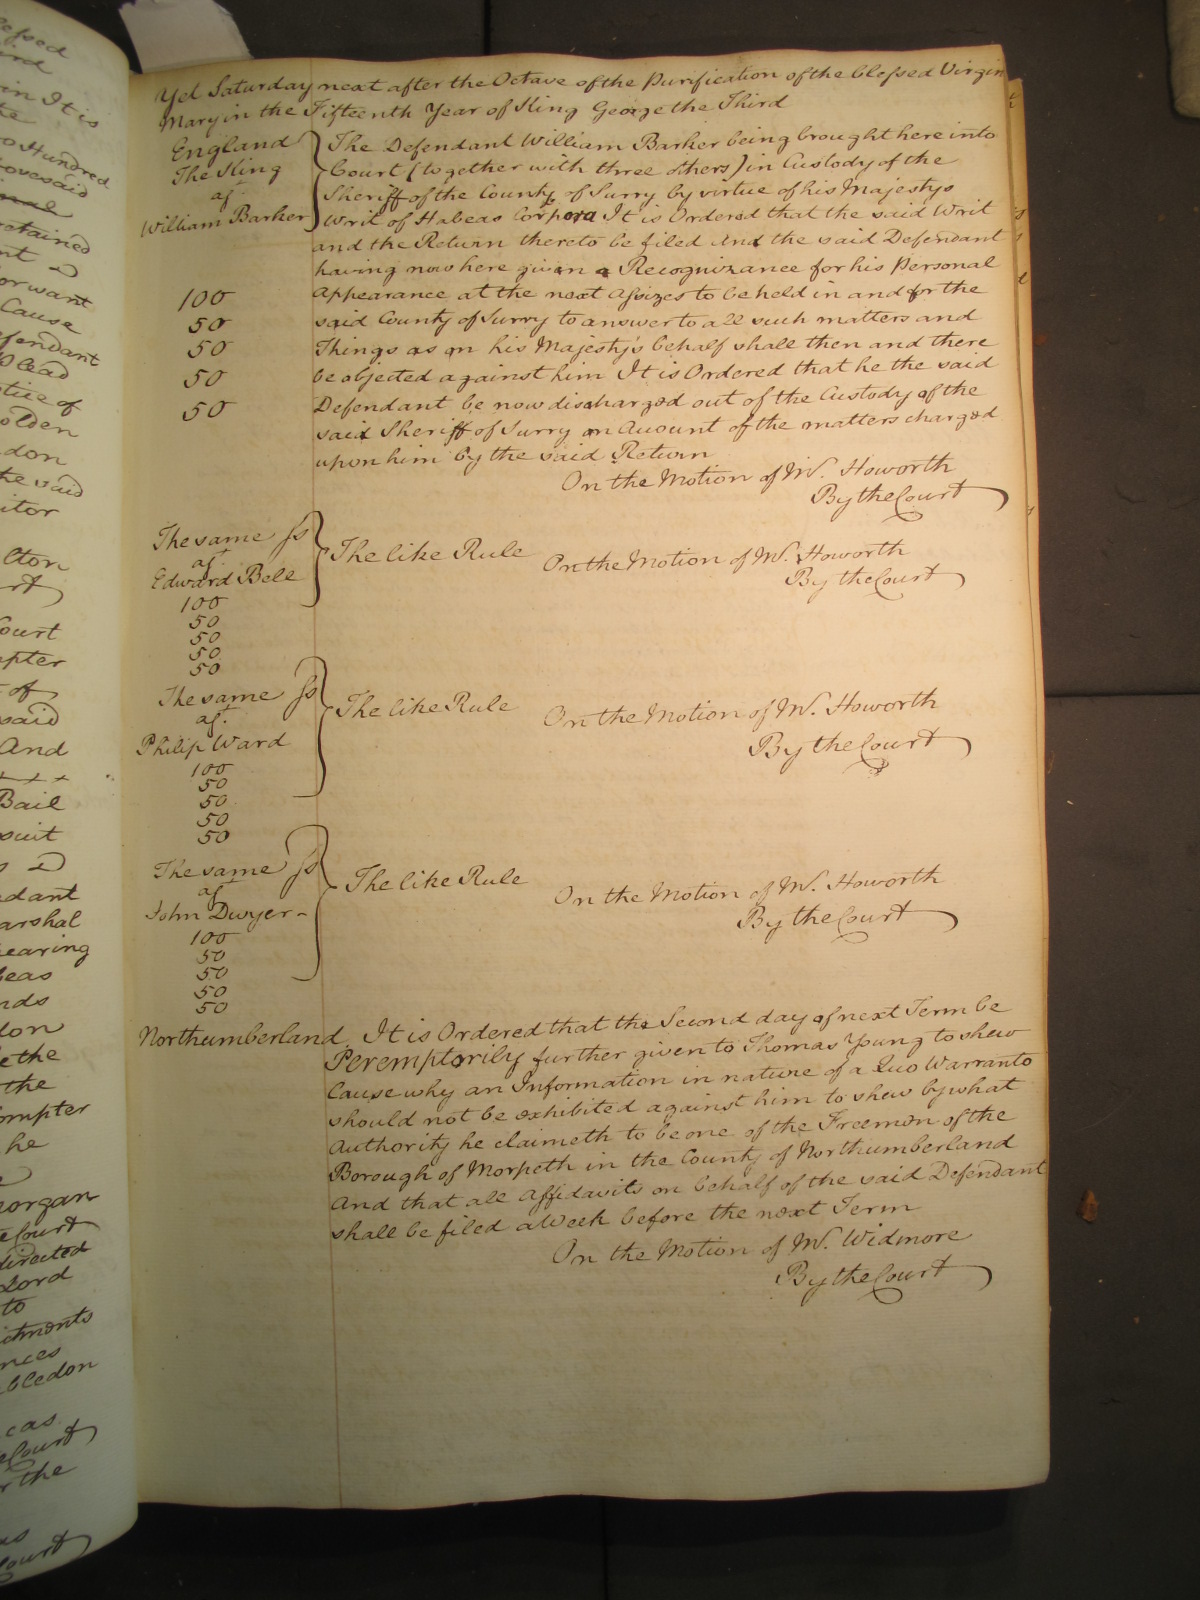 Yet Saturday next after the Octave of the Purification of the blessed Virgin
Mary in the Fifteenth Year of King George the Third
England
The King
agt
William Barker
The Defendant William Barker being brought here into
Court (together with three others) in Custody of the
Sheriff of the County of Surry by virtue of his Majestys
Writ of Habeas Corpora It is Ordered that the said Writ
and the Return thereto be filed And the said Defendant
having now here given a Recognizance for his Personal
100
50
50
50
50
Appearance at the next Assizes to be held in and for the
said County of Surry to answer to all such matters and
Things as on his Majesty's behalf shall then and there
be objected against him It is Ordered that he the said
Defendant be now discharged out of the Custody of the
said Sheriff of Surry on Account of the matters charged
upon him by the said Return
On the Motion of Mr. Howorth
By the Court
The same ss
agt
Edward Bele
100
50
50
50
50
The like Rule On the Motion of Mr. Howorth
By the Court
The same ss
agt
Philip Ward
100
50
50
50
50
The like Rule On the Motion of Mr. Howorth
By the Court
The same ss
agt
John Dwyer
100
50
50
50
50
The like Rule On the Motion of Mr. Howorth
By the Court
Northumberland It is Ordered that the Second day of next Term be
Peremptorily further given to Thomas Young to shew
Cause why an Information in nature of a Quo Warranto
should not be exhibited against him to shew by what
Authority he claimeth to be one of the Freemen of the
Borough of Morpeth in the County of Northumberland
And that all Affidavits on behalf of the said Defendant
shall be filed a Week before the next Term
On the Motion of Mr. Widmore
By the Court